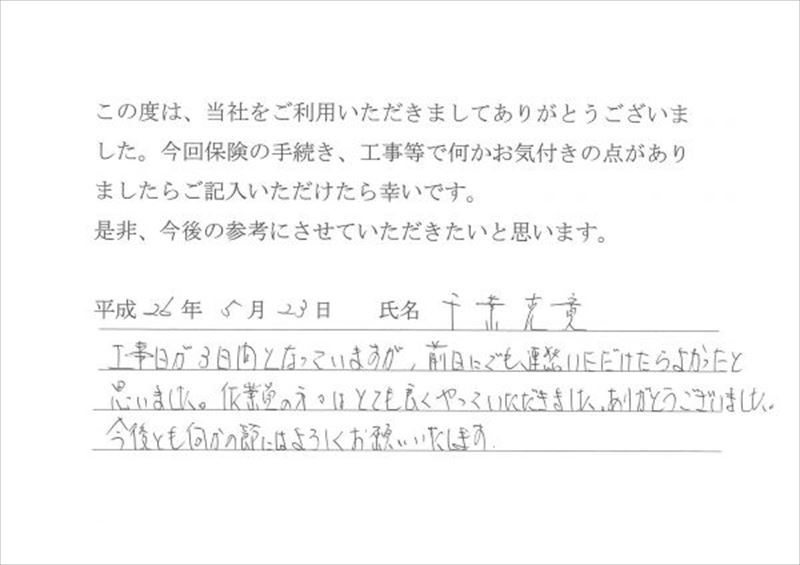 この度は、当社をご利用いただきましてありがとうございま
した。今回保険の手続き、工事等で何かお気付きの点があり
ましたらご記入いただけたら幸いです。
是非、今後の参考にさせていただきたいと思います。
平成26年 5月23日 氏名 千葉克
工事日が3日間となっていますが、前日にでも連絡いただけたらよかったと
思いました。作業員の方々はとても良くやっていただきました。ありがとうございました。
今後とも何かの節にはよろしくお願いいたします.